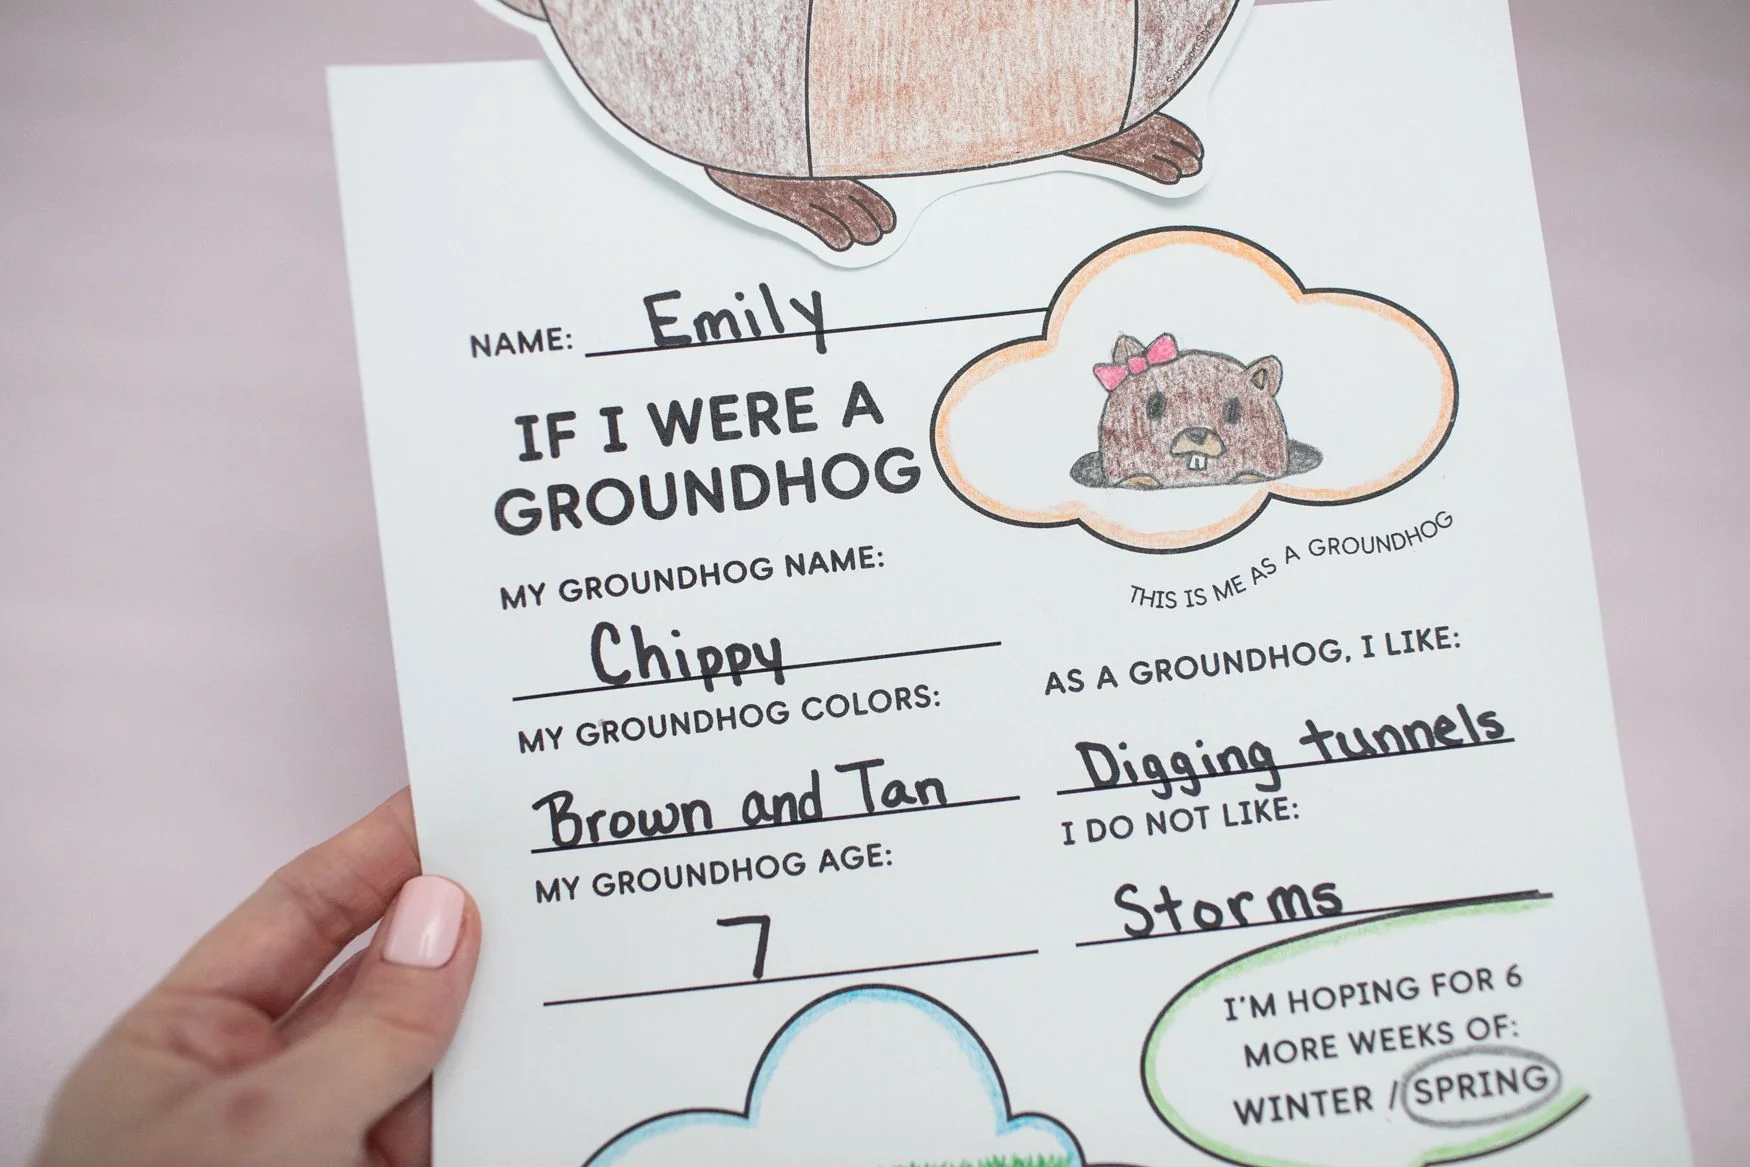 NAME: Emily
IF I WERE A
GROUNDHOG
THIS IS ME AS A GROUNDHOG
MY GROUNDHOG NAME:
Chippy
MY GROUNDHOG COLORS:
Brown and Tan
MY GROUNDHOG AGE:
7
AS A GROUNDHOG, I LIKE:
Digging tunnels
I DO NOT LIKE:
Storms
I'M HOPING FOR 6
MORE WEEKS OF:
WINTER / SPRING